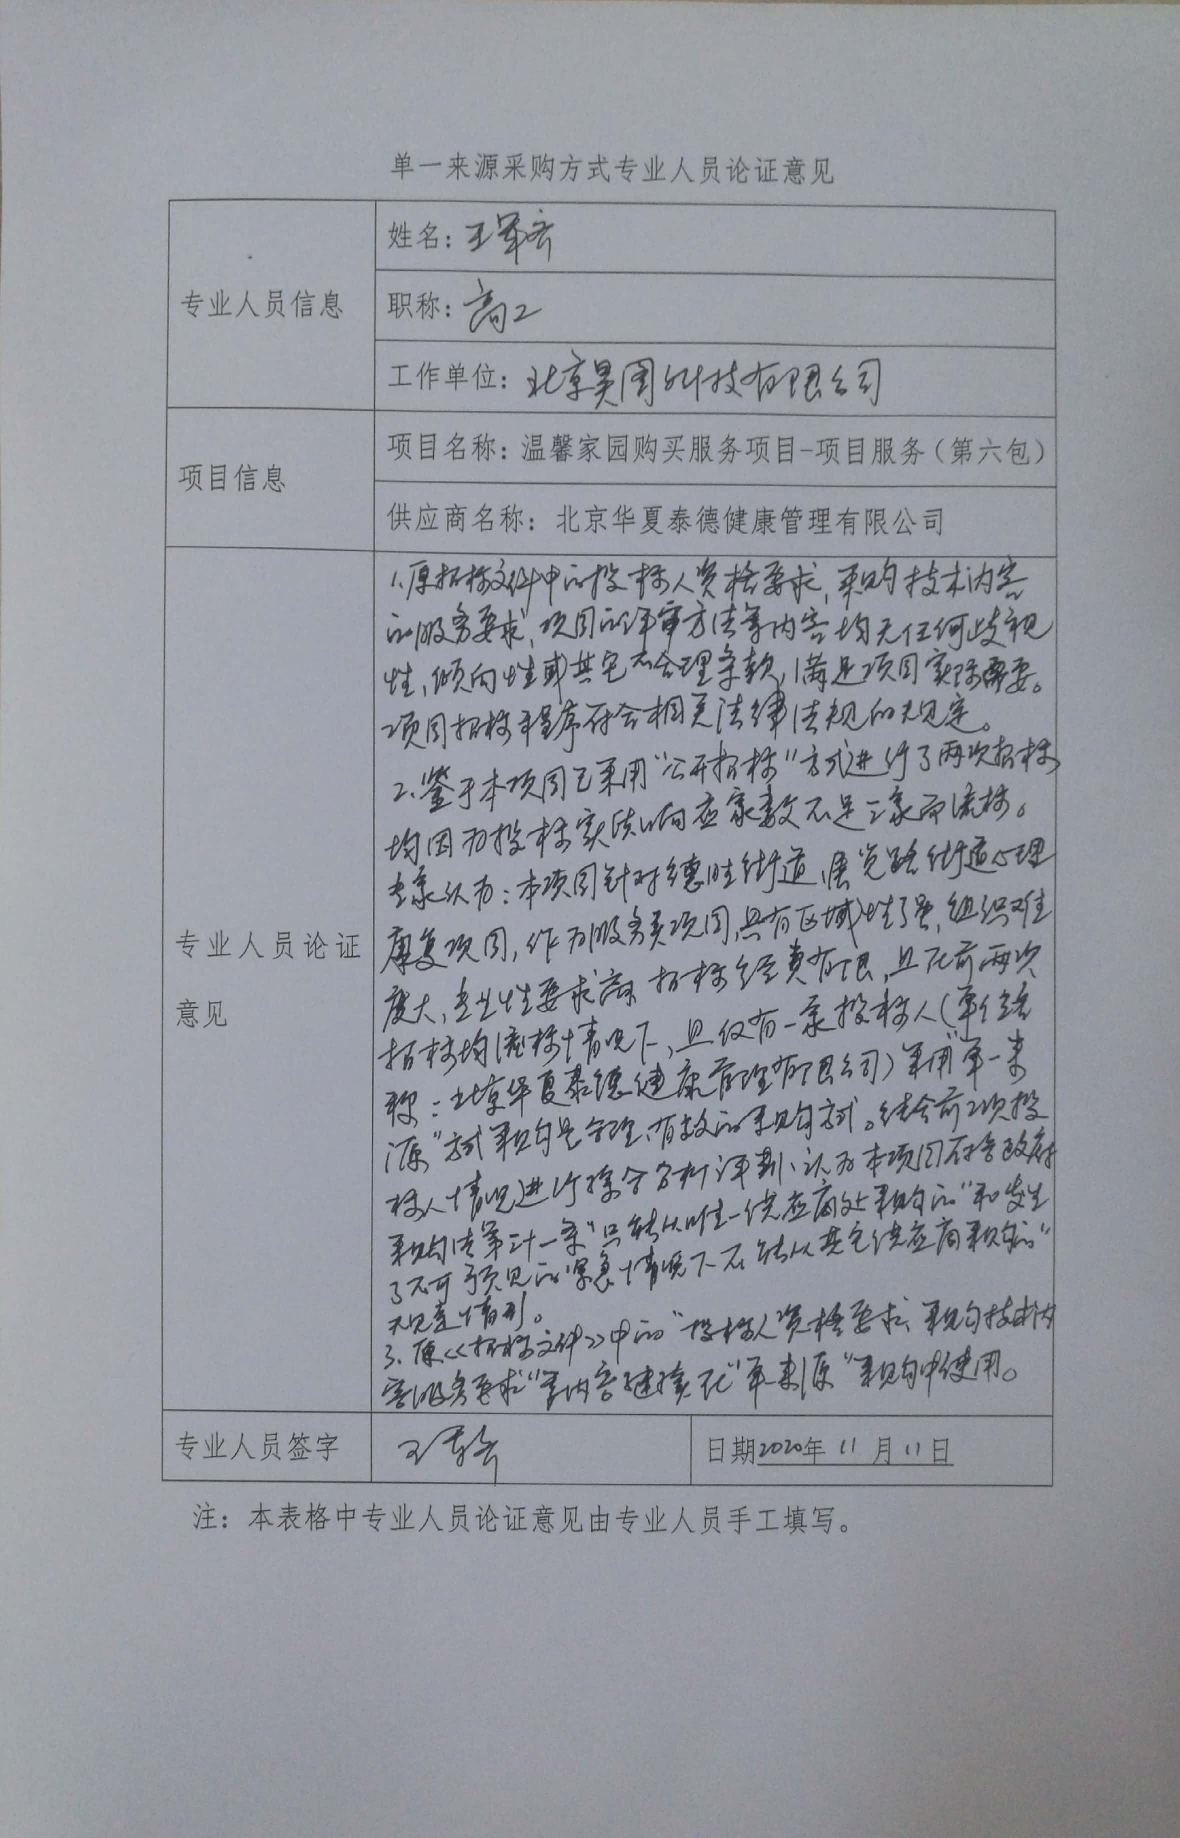 单一来源采购方式专业人员论证意见
专业人员信息
姓名：王军
职称：高工
工作单位：北京昊图科技有限公司
项目信息
项目名称：温馨家园购买服务项目-项目服务（第六包）
供应商名称：北京华夏泰德健康管理有限公司
专业人员论证
意见
1.原招标文件中的投标人资格要求，采购技术内容
的服务要求，项目的评审方法等内容均无任何歧视
性、倾向性或其它不合理条款，满足项目实际需要。
项目招标程序符合相关法律法规的规定。
2.鉴于本项目已采用“公开招标”方式进行了两次招标
均因为投标实质响应家数不足三家而流标。
专家认为：本项目针对德胜街道、展览路街道心理
康复项目，作为服务类项目，具有区域性强，组织难
度大，专业性要求高，招标经费有限，且在前两次
招标均流标情况下，且仅有一家投标人（单位名
称：北京华夏泰德健康管理有限公司）采用“单一来
源”方式采购是合理、有效的采购方式。结合前二次投
标人情况进行综合分析评判、认为本项目符合政府
采购法第三十一条“只能从唯一供应商处采购的”和发生
了不可预见的紧急情况下不能从其它供应商采购的“
规定情形。
3.原《招标文件》中的“投标人资格要求、采购技术内
容服务要求”等内容继续在“单一来源”采购中使用。
专业人员签字
王军
日期2020年 11 月 11 日
注：本表格中专业人员论证意见由专业人员手工填写。